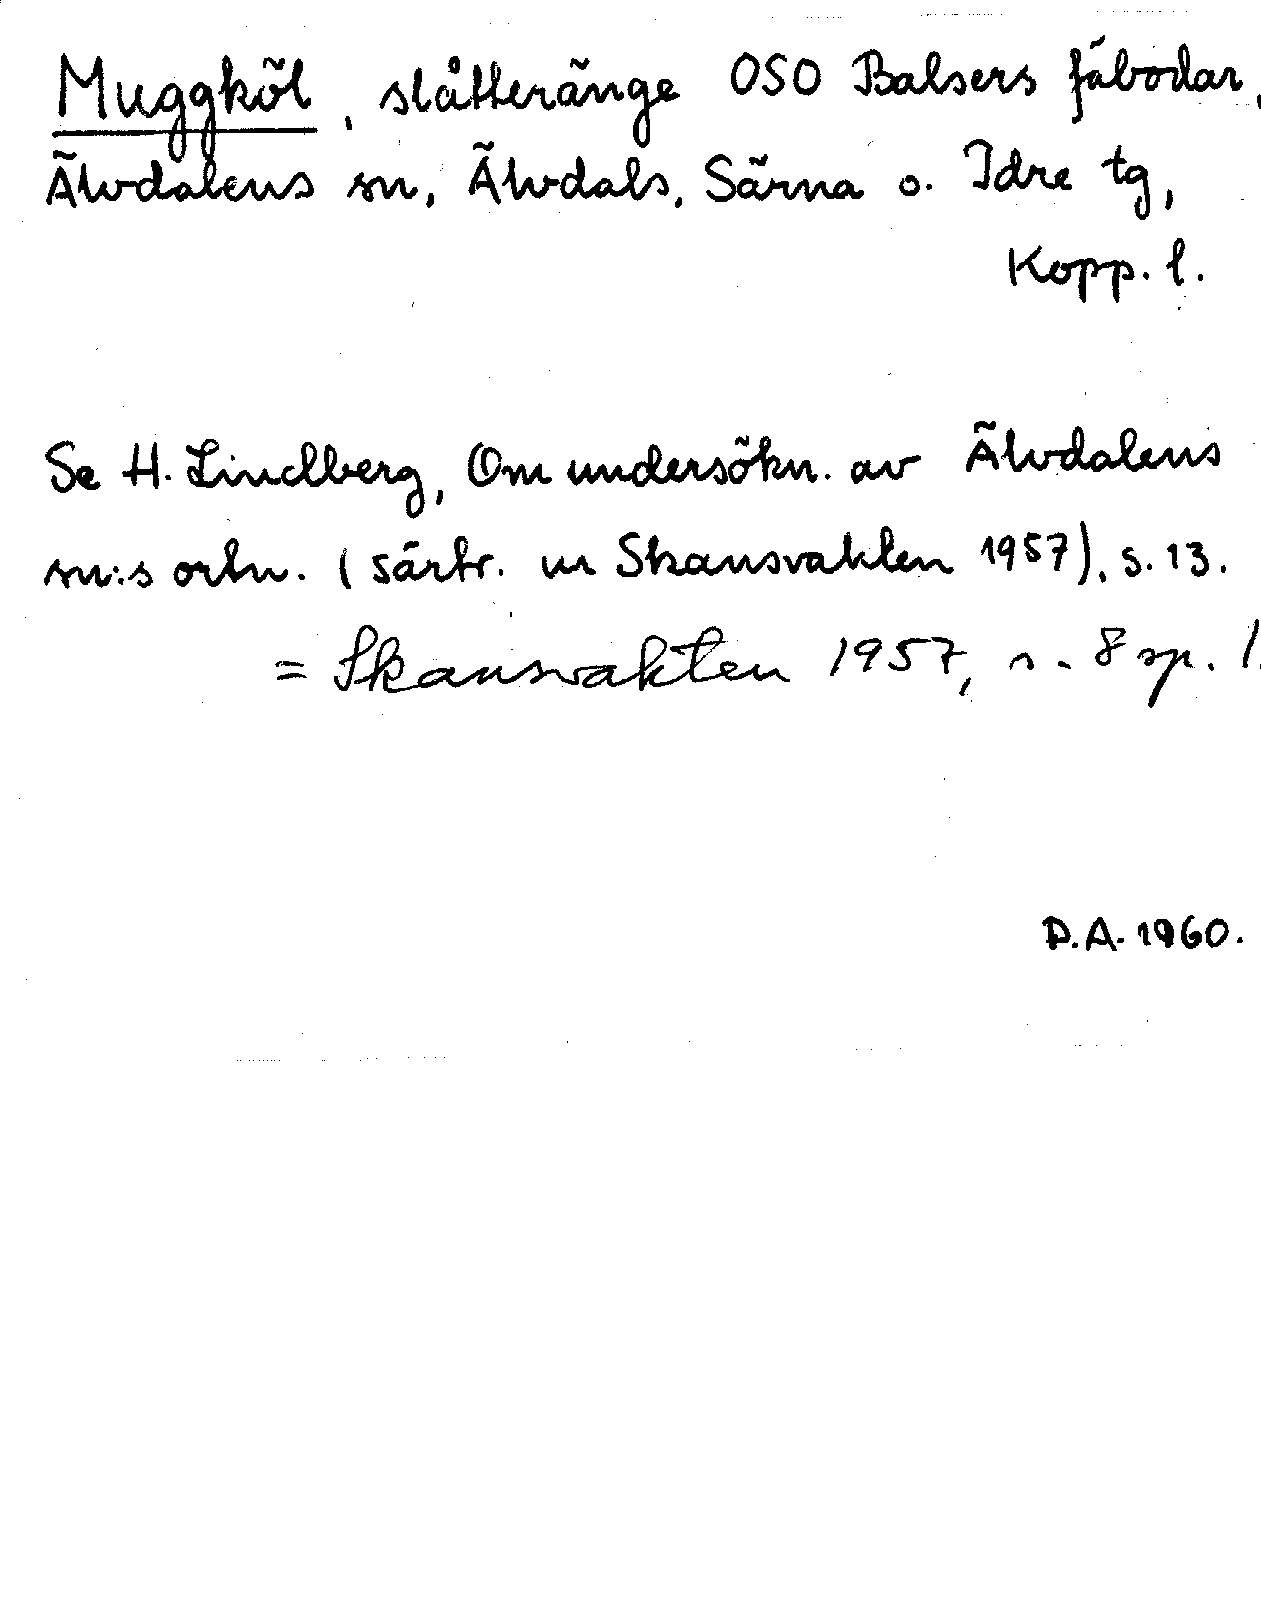 Muggköl, slåtteränge OSO Balsers fäbodar,
Älvdalens sn, Älvdals, Särna o. Idre tg,
Kopp. l.
Se H. Lindberg, Om undersökn. av Älvdalens
sn:s ortn. (särtr. ur Skansvakten 1957), s. 13.
= Skansvakten 1957, s. 8 sp. 1.
D.A. 1960.